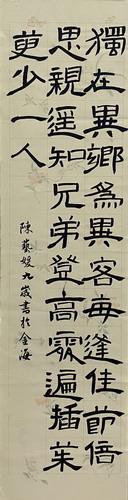 獨在異鄉為異客每逢佳節倍
思親遥知兄弟登高處遍插茱
萸少一人
陳藝媛九歲書於金海